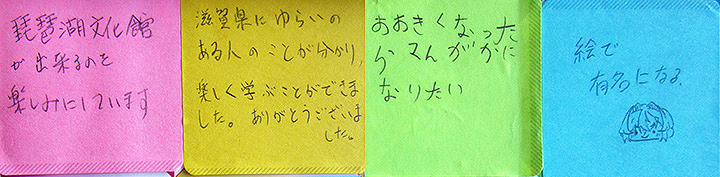 琵琶湖文化館
が出来るのを
楽しみにしています
滋賀県にゆらいの
ある人のことが分かり、
楽しく学ぶことができま
した。ありがとうございま
した。
おおきくなった
らまんがかに
なりたい
絵で
有名になる。